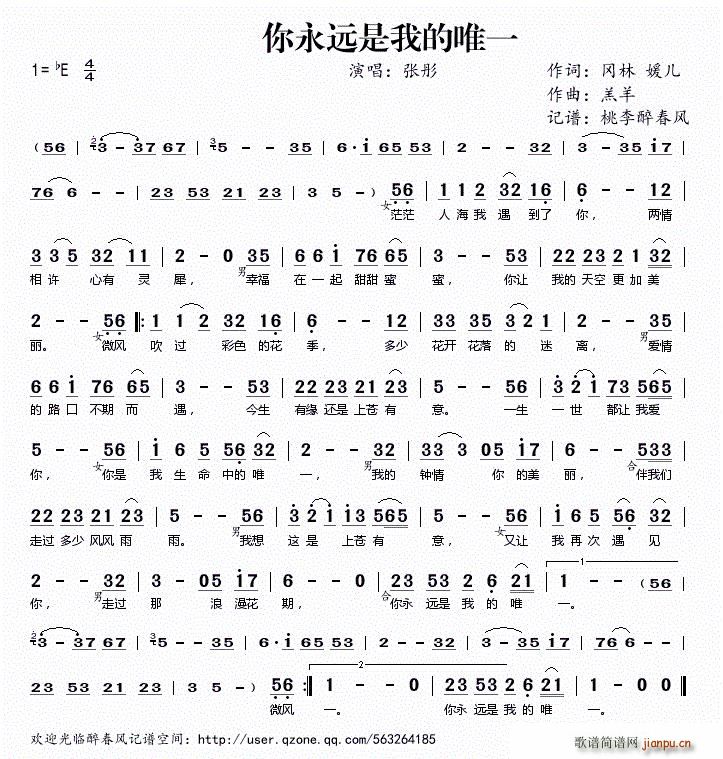 你永远是我的唯一
1=♭E 4/4 演唱：张彤 作词：冈林 媛儿
作曲：羔羊
记谱：桃李醉春风
(56 | 3-3767 | 35--35 | 6·i5535 | 2--32 | 3-35i7 |
766-- | 23532123 | 35-) 56 | 112 32 16 | 6--12 |
女 茫茫 人海我遇到了 你， 两情
335 32 11 | 2-035 | 66i 7665 | 3--53 | 22235321 32 |
相许 心有灵 犀， 男 幸福 在一起甜甜蜜 蜜， 你让 我的天空更加美
2--56 |: 112 32 16 | 6--12 | 3335321 | 2--35 |
丽。 女 微风 吹过 彩色的花 季， 多少 花开花落的迷 离， 男 爱情
66i 7665 | 3--53 | 0553 22123 | 5--56 | 32i 73565 |
的路口不期而 遇， 今生 有缘还是上苍有 意。 一生 一世 都让我爱
5--56 | i65 5632 | 2--32 | 23 05i7 | 6--533 |
你， 女 你是 我生命中的唯 一， 男 我的 钟情 你的美 丽， 合 伴我们
22232123 | 5--56 | 32i i3565 | 5--53 | 2235632 |
走过多少风风雨 雨。 男 我想 这是 上苍有 意， 女 又让 我再次遇见
2--32 | 3-05i7 | 6--0 | 2353 2 6 21 | 1--(56 |
你， 男 走过 那 浪漫花 期， 合 你永远是我的唯 一。
3-3767 | 35--35 | 6·i5653 | 2--32 | 3-35i7 | 766-- |
23532123 | 35-) 56 :| 1--0 | 2353 2 6 21 | 1--00 ‖
女 微风 一。 你永远是我的唯 一。
欢迎光临醉春风记谱空间：http://user.qzone.qq.com/563264185
歌谱简谱网 jianpu.cn